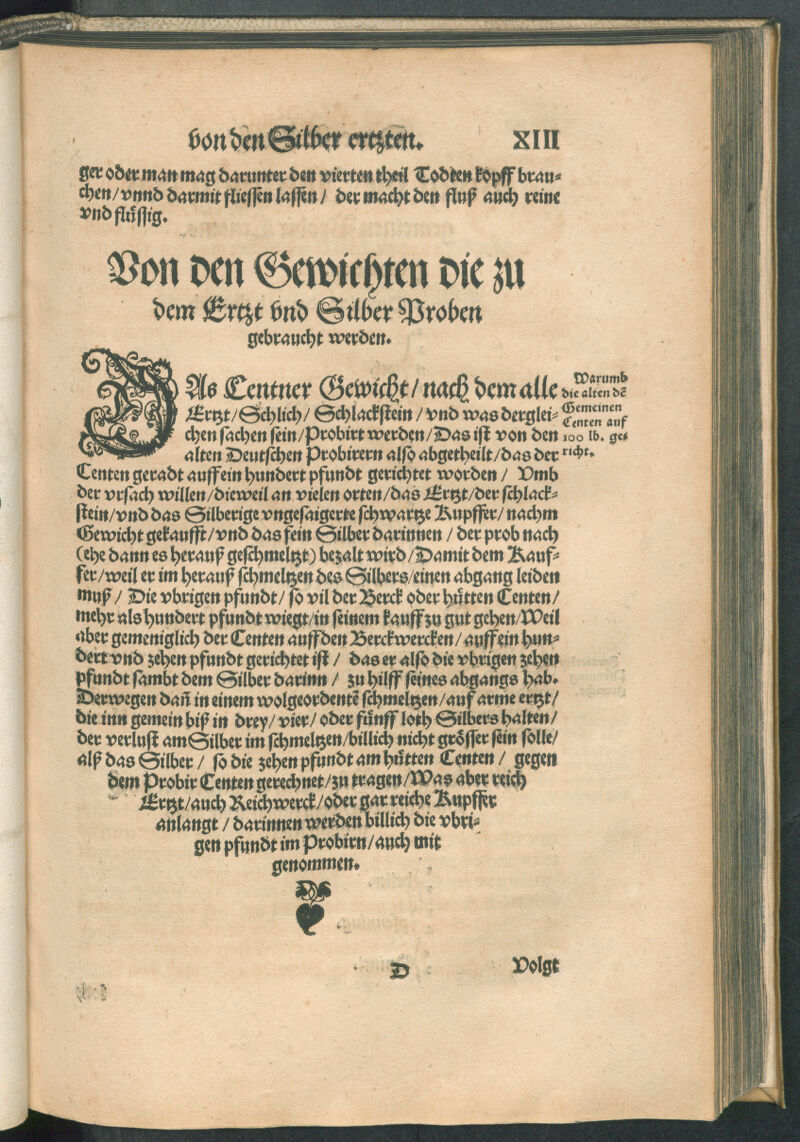 von den Silber ertzten. XIII
ger oder man mag darunter den vierten theil Todten kopff brau-
chen/vnnd darmit fliessen lassen/ der macht den fluß auch reine
vnd flüssig.
Von den Gewichten die zu
dem Ertzt vnd Silber Proben
gebraucht werden.
DAs Centner Gewicht/nach dem alle
Ertzt/Schlich/Schlackstein/vnd was derglei-
chen sachen sein/Probirt werden/Das ist von den
alten Deutschen Probirern also abgetheilt/das der
Warumb
die alten dē
Gemeinen
Centen auf
100 lb. ge-
richt.
Centen geradt auff ein hundert pfundt gerichtet worden/ Vmb
der vrsach willen/dieweil an vielen orten/das Ertzt/der schlack-
stein/vnd das Silberige vngesaigerte schwartze Kupffer/nachm
Gewicht gekaufft/vnd das fein Silber darinnen/der prob nach
(ehe dann es herauß geschmeltzt) bezalt wird/Damit dem Kauf-
fer/weil er im herauß schmeltzen des Silbers/einen abgang leiden
muß/ Die vbrigen pfundt/so vil der Berck oder hütten Centen/
mehr als hundert pfundt wiegt/in seinem kauff zu gut gehen/Weil
aber gemeniglich der Centen auff den Berckwercken/auff ein hun-
dert vnd zehen pfundt gerichtet ist/ das er also die vbrigen zehen
pfundt sambt dem Silber darinn/ zu hilff seines abgangs hab.
Derwegen dañ in einem wolgeordentē schmeltzen/auf arme ertzt/
die inn gemein biß in drey/vier/oder fünff loth Silbers halten/
der verlust am Silber im schmeltzen/billich nicht grösser sein solle/
alß das Silber/ so die zehen pfundt am hütten Centen/ gegen
dem Probir Centen gerechnet/zu tragen/Was aber reich
Ertzt/auch Reichwerck/oder gar reiche Kupffer
anlangt/darinnen werden billich die vbri-
gen pfundt im Probirn/auch mit
genommen.
D Volgt